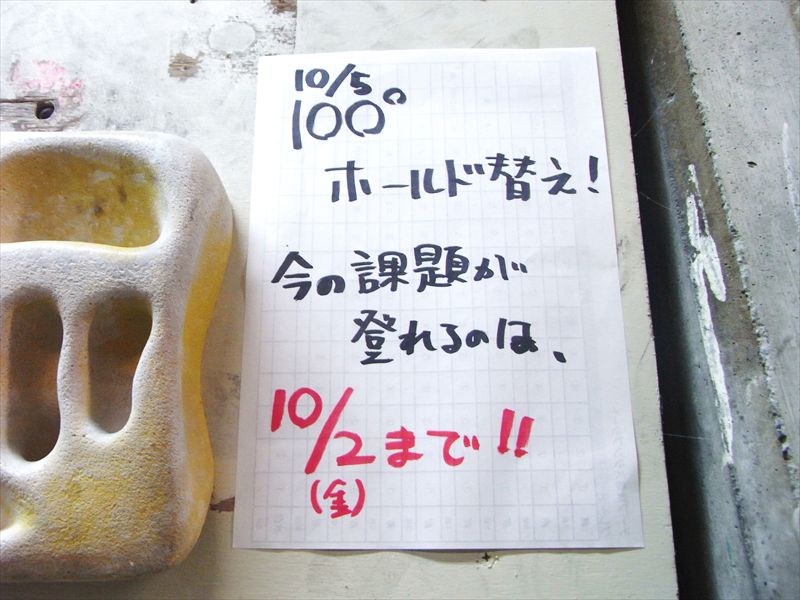 10/5
100°
ホールド替え!
今の課題が
登れるのは、
10/2まで!!
(金)